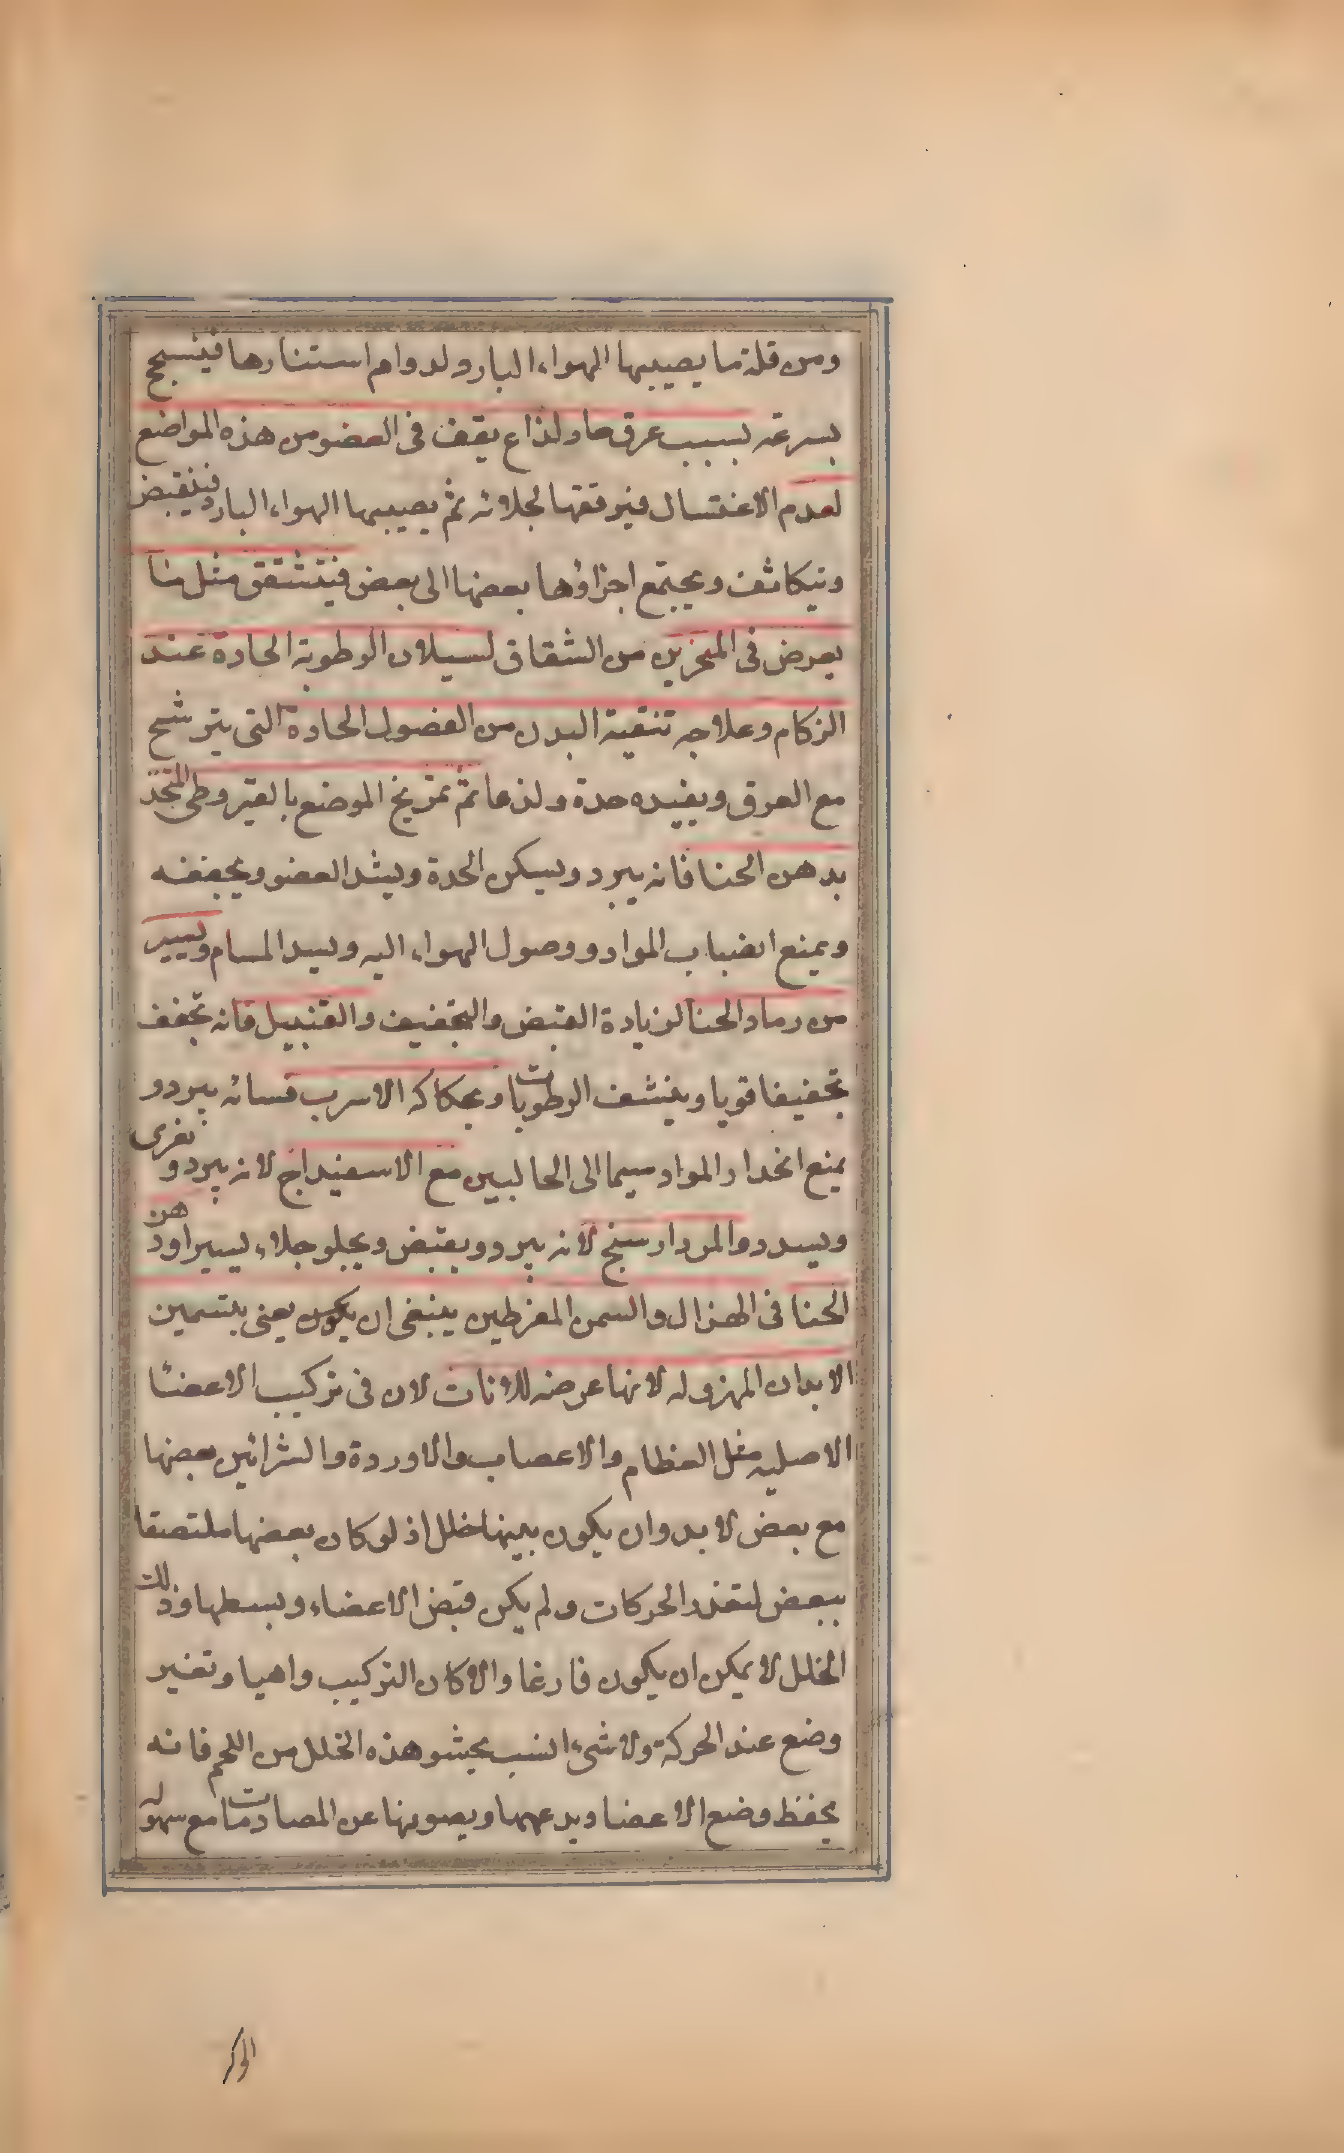 ومن قلة ما يصيبها الهواء البارد ولدوام استتارها فينسحج
بسرعة بسبب عرق حاد لذاع يقف فى العضو من هذه المواضع
لعدم الاغتسال فيرققها لجلائه ثم يصيبها الهواء البارد فينقبض
ويتكاثف ويجتمع اجزاؤها بعضها الى بعض فيتشقق مثل ما
يعرض فى المنخرين من الشقاق لسيلان الرطوبة الحادة عند
الزكام وعلاجه تنقية البدن من الفضول الحادة التى يترشح
مع العرق ويفيده حدة ولذعا ثم تمريخ الموضع بالقيروطى المتخذ
بدهن الحنا فانه يبرد ويسكن الحدة ويشد العضو ويجففه
ويمنع انصباب المواد ووصول الهواء اليه ويسد المسام ويسير
من رماد الحنا لزيادة القبض والتجفيف والقنبيل فانه تجفف
تجفيفا قويا وينشف الرطوبات وبحكاكه الاسرب فانه يبرد و
يمنع انحدار المواد سيما الى الحالبين مع الاسفيداج لانه يبرد و يغرى
ويسدد والمردارسنج لانه يبرد ويقبض ويجلو جلاء يسيرا ودهن
الحنا فى الهزال والسمن المفرطين ينبغى ان يكون يعنى بتسمين
الابدان المهزوله لانها عرضه للافات لان فى تركيب الاعضا
الاصليه مثل العظام والاعصاب والاوردة والشرائين بعضها
مع بعض لا بد وان يكون بينها خلل اذ لو كان بعضها ملتصقا
ببعض لتعذر الحركات ولم يكن قبض الاعضاء وبسطها وذلك
الخلل لا يمكن ان يكون فارغا والا كان التركيب واهيا وتغير
وضع عند الحركة ولا شىء انسب بحشو هذه الخلل من اللحم فانه
يحفظ وضع الاعضا ويدعمها ويصونها عن المصادمات مع سهولة